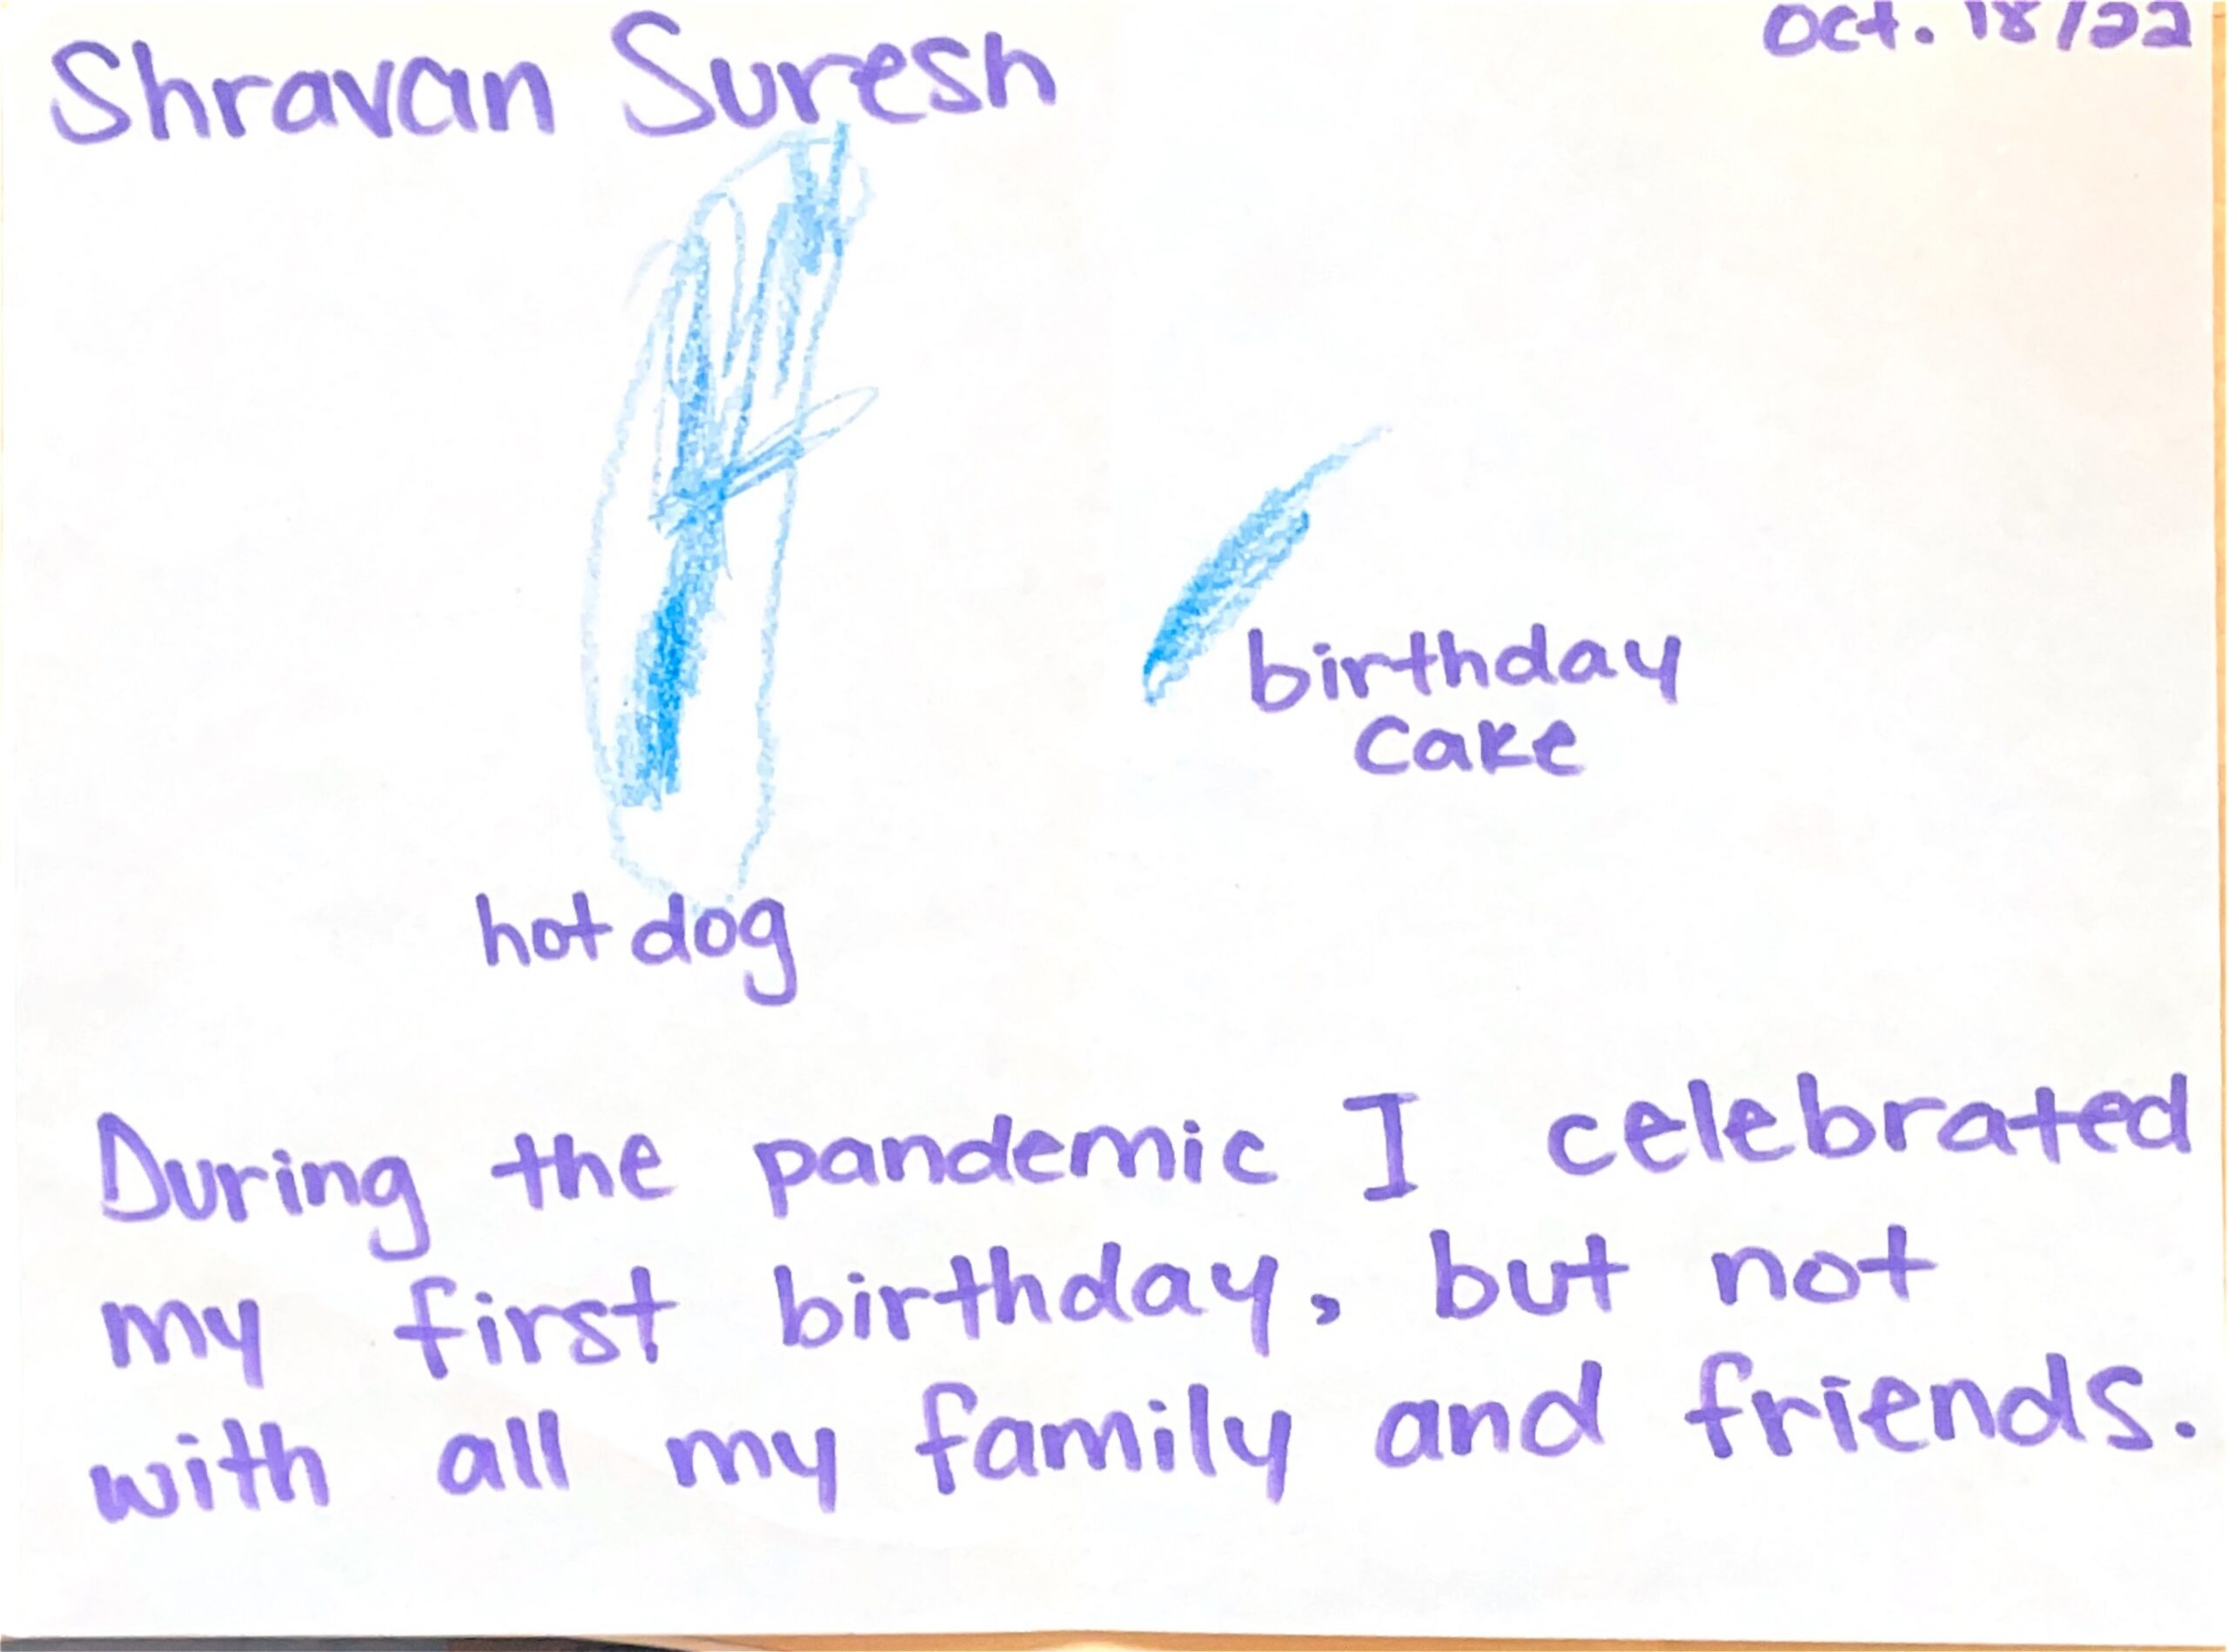 Shravan Suresh
Oct. 18/22
birthday
cake
hot dog
During the pandemic I celebrated
my first birthday, but not
with all my family and friends.